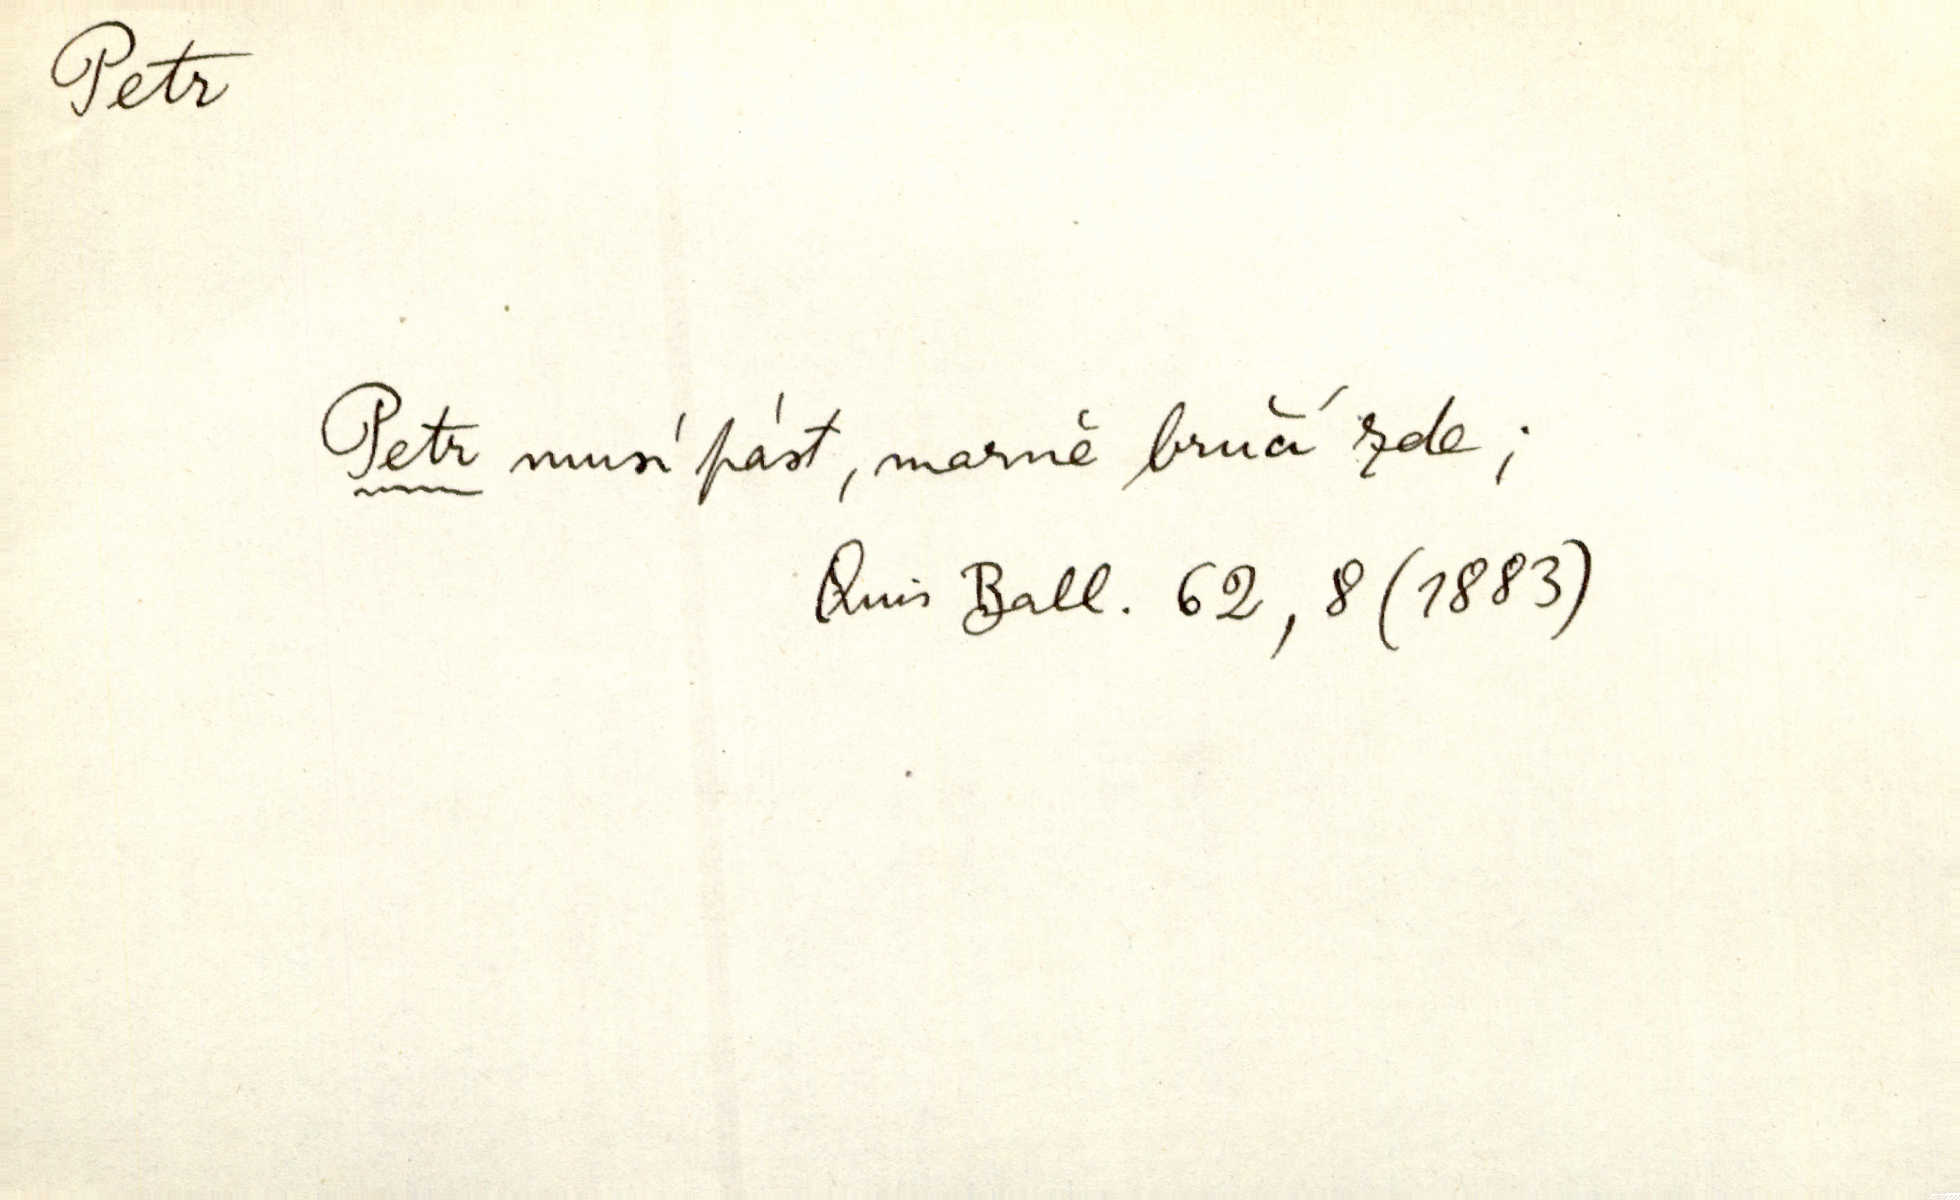 Petr
Petr musí pást, marně bručí zde;
Quis Ball. 62, 8 (1883)